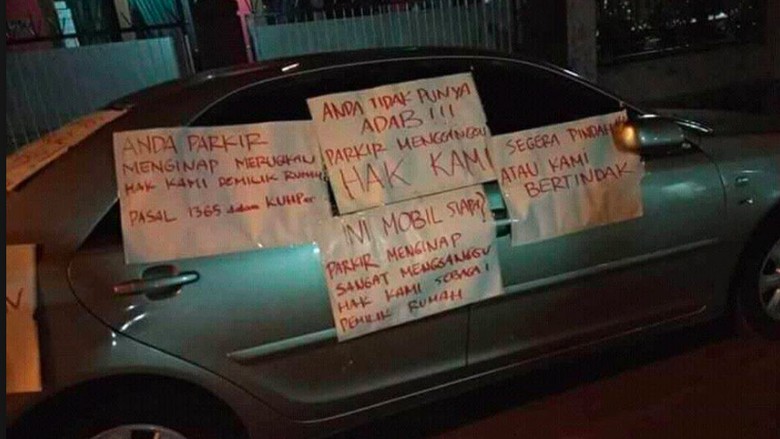 ANDA PARKIR
MENGINAP MERUGIKAN
HAK KAMI PEMILIK RUMAH
PASAL 1365 dalam KUHPer
ANDA TIDAK PUNYA
ADAB!!!
PARKIR MENGGANGGU
HAK KAMI
INI MOBIL SIAPA?
PARKIR MENGINAP
SANGAT MENGGANGGU
HAK KAMI SEBAGAI
PEMILIK RUMAH
SEGERA PINDAH!!!
ATAU KAMI
BERTINDAK